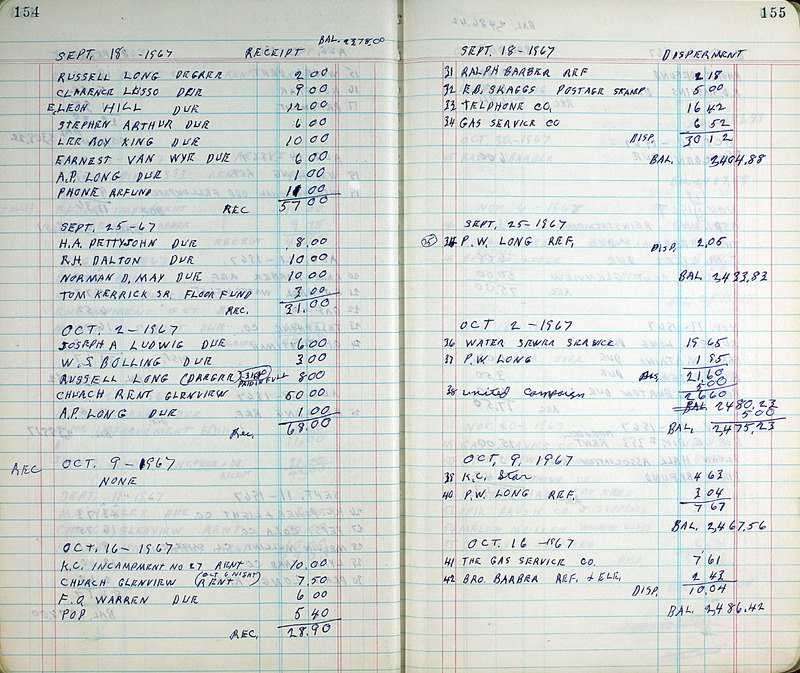 154
BAL. 2378.00
SEPT. 18-1967 RECEIPT
RUSSELL LONG DEGREE 2 00
CLARENCE LUSSO DUE 9 00
ELEON HILL DUE 12 00
STEPHEN ARTHUR DUE 6 00
LEE ROY KING DUE 10 00
EARNEST VAN WYE DUE 6 00
A.P. LONG DUE 1 00
PHONE REFUND 11 00
REC 57 00
SEPT. 25-67
H.A. PETTYJOHN DUE 8.00
R.H. DALTON DUE 10 00
NORMAN D. MAY DUE 10 00
TOM KERRICK SR. FLOOR FUND 3 00
REC. 31.00
OCT. 2-1967
JOSEPH A LUDWIG DUE 6 00
W.S. BOLLING DUE 3 00
RUSSELL LONG (DREGRE) PAID IN FULL 8 00
CHURCH RENT GLENVIEW 50 00
A.P. LONG DUE 1 00
Rec. 68.00
REC OCT. 9-1967
NONE
OCT. 16-1967
K.C. INCAMPMENT NO 27 RENT 10.00
CHURCH GLENVIEW (OCT 6 NIGHT) (RENT) 7.50
F.Q WARREN DUE 6 00
POP 5 40
REC. 28.90
155
SEPT. 18-1967 DISPERMENT
31 RALPH BARBER REF 2 18
32 E.D. SKAGGS POSTAGE STAMP 5 00
33 TELPHONE CO, 16 42
34 GAS SERVICE CO 6 52
DISP. 30 12
BAL. 2,404.88
SEPT. 25-1967
35 P.W. LONG REF. DISP. 2.05
BAL 2,433.83
OCT 2-1967
36 WATER SEWER SERVICE 19 65
37 P.W. LONG 1 95
DIS. 21,60
38 united campaign 5 00
26 60
BAL 2480.23
5 00
BAL. 2,475,23
OCT, 9, 1967
39 K.C. Star 4 63
40 P.W. LONG REF. 3 04
7 67
BAL. 2,467.56
OCT. 16-1967
41 THE GAS SERVICE CO. 7 61
42 BRO. BARBER REF. + ELE. 2 43
DISP. 10.04
BAL. 2,486.42